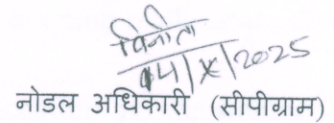 विनीता
14/X/2025
नोडल अधिकारी (सीपीग्राम)